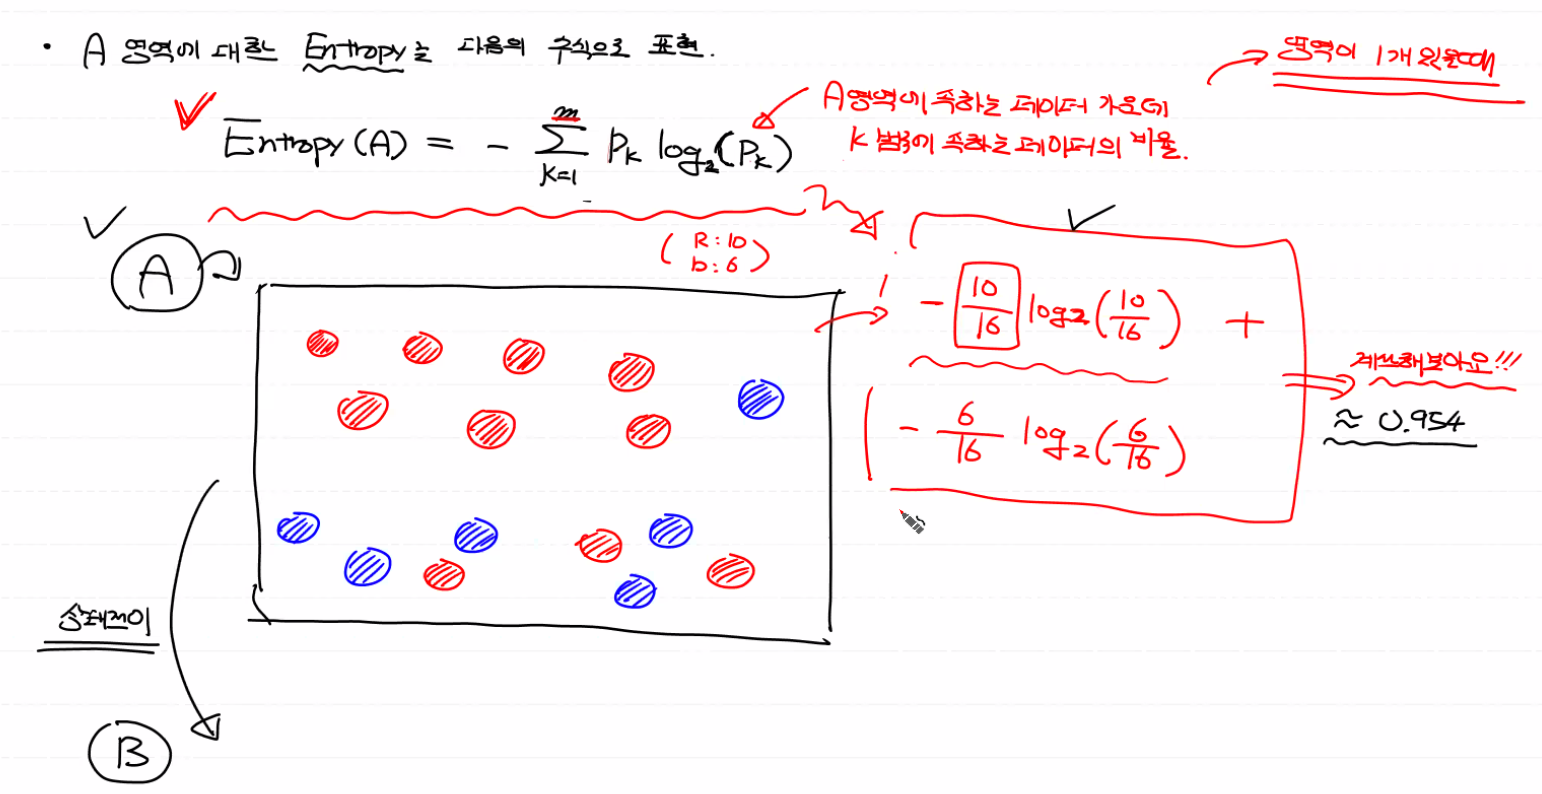 • A 영역에 대한 Entropy는 다음의 수식으로 표현.
영역이 1개 있을때
Entropy(A) = - \sum_{k=1}^{m} P_k log_2(P_k)
A영역에 속하는 데이터 가운데
K 범주에 속하는 데이터의 비율.
A
(R:10
b:6)
- 10/16 log2(10/16) +
- 6/16 log2(6/16)
계산해보아요!!!
≈ 0.954
상태전이
B